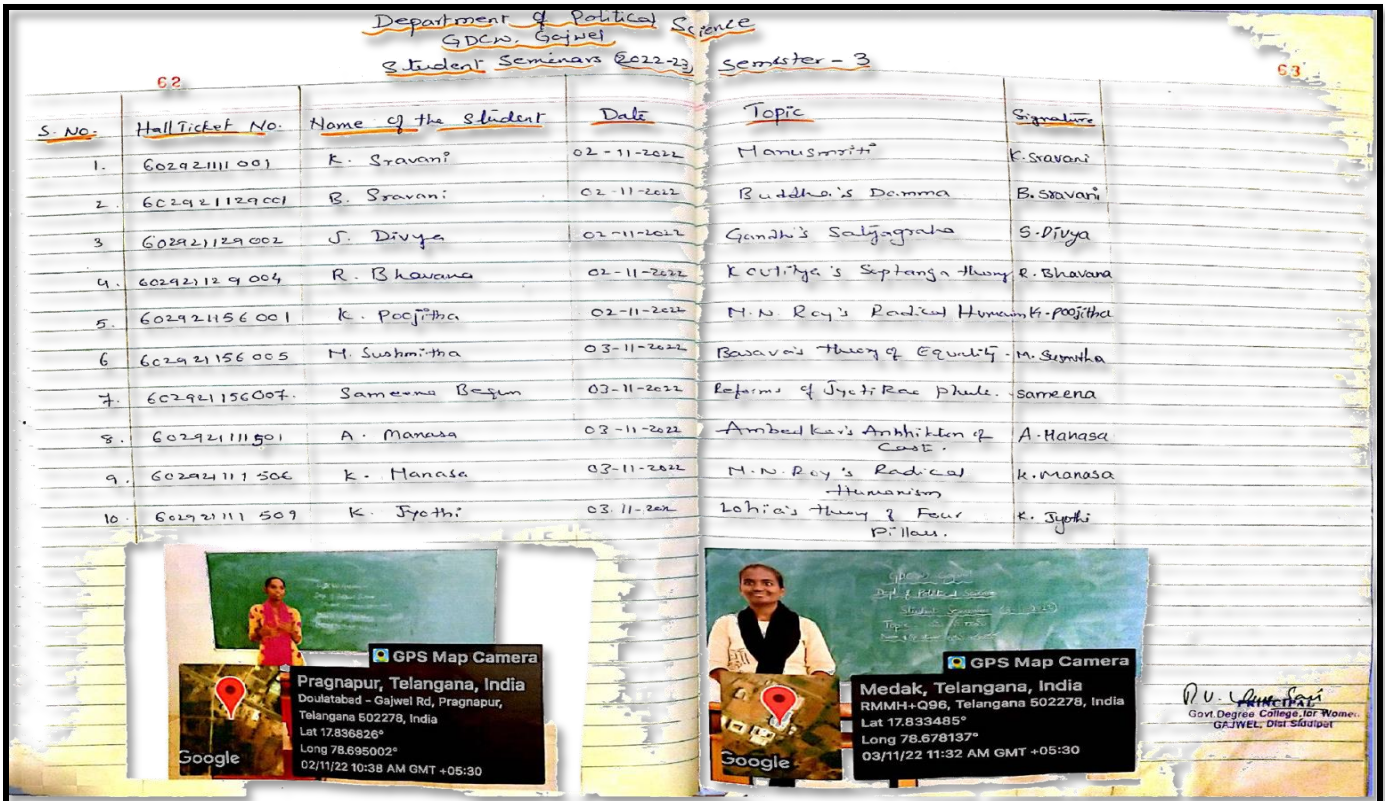 Department of Political Science
GDCW. Gajwel
Student Seminars (2022-23) Semester - 3
62
63
S. No. Hall Ticket No. Name of the Student Date Topic Signature
1. 602921111001 K. Sravani 02-11-2022 Manusmriti K. Sravani
2. 602921129001 B. Sravani 02-11-2022 Buddha's Damma B. Sravani
3 602921129002 S. Divya 02-11-2022 Gandhi's Satyagraha S. Divya
4. 602921129004 R. Bhavana 02-11-2022 Kautilya's Saptanga theory R. Bhavana
5. 602921156001 K. Poojitha 02-11-2022 M.N. Roy's Radical Humanism K. Poojitha
6 602921156005 M. Sushmitha 03-11-2022 Basava's theory of Equality. M. Susmitha
7. 602921156007. Sameena Begum 03-11-2022 Reforms of Jyoti Rao phule. sameena
8. 602921111501 A. Manasa 03-11-2022 Ambedkar's of A. Manasa
Cast.
9. 602921111506 K. Manasa 03-11-2022 M.N. Roy's Radical K. Manasa
Humanism
10. 602921111509 K. Jyothi 03.11-2022 Lohia's theory of Four K. Jyothi
Pillars.
GPS Map Camera
Pragnapur, Telangana, India
Doulatabad - Gajwel Rd, Pragnapur,
Telangana 502278, India
Lat 17.836826°
Long 78.695002°
02/11/22 10:38 AM GMT +05:30
Google
Dept. of Political Science
Student Seminar
Topic
GPS Map Camera
Medak, Telangana, India
RMMH+Q96, Telangana 502278, India
Lat 17.833485°
Long 78.678137°
03/11/22 11:32 AM GMT +05:30
Google
PRINCIPAL
Govt.Degree College for Women
GAJWEL, Dist Siddipet